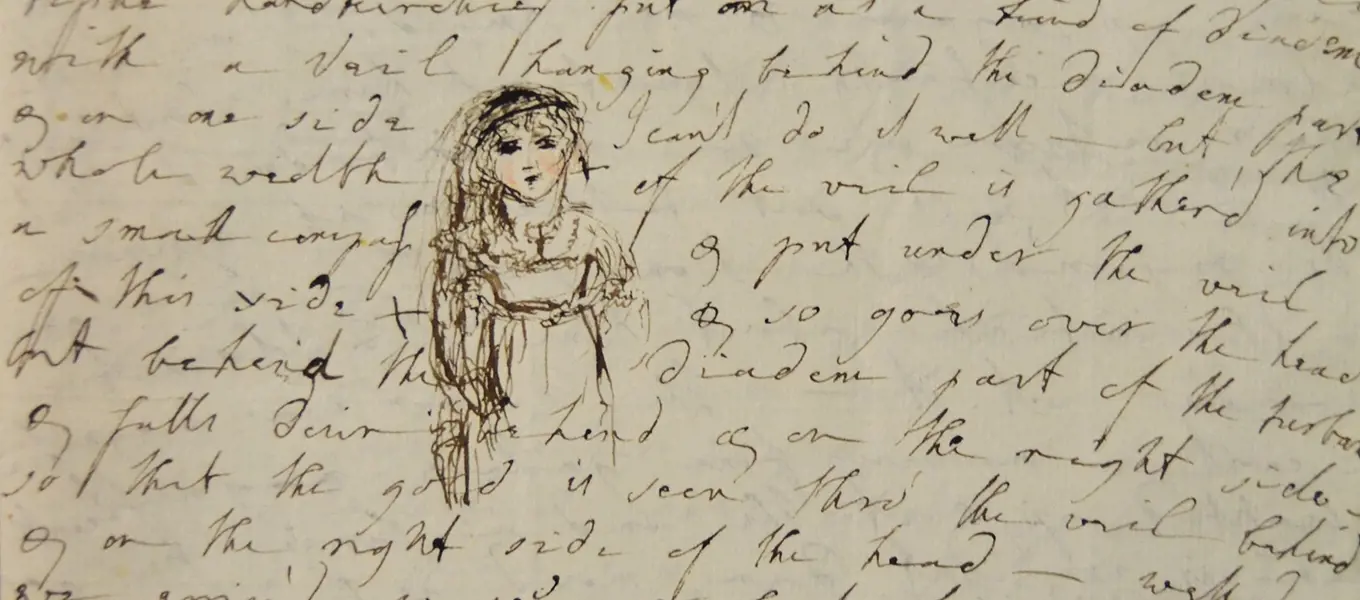 handkerchief put on as a kind of diadem
with a Veil hanging behind the diadem part
& on one side I can't do it well — but the
whole width + of the veil is gatherd into
a small compass & put under the veil
of this side + & so goes over the head
but behind the diadem part of the turban
& falls down behind & on the right side
so that the gold is seen thro' the veil behind
& on the right side of the head — well